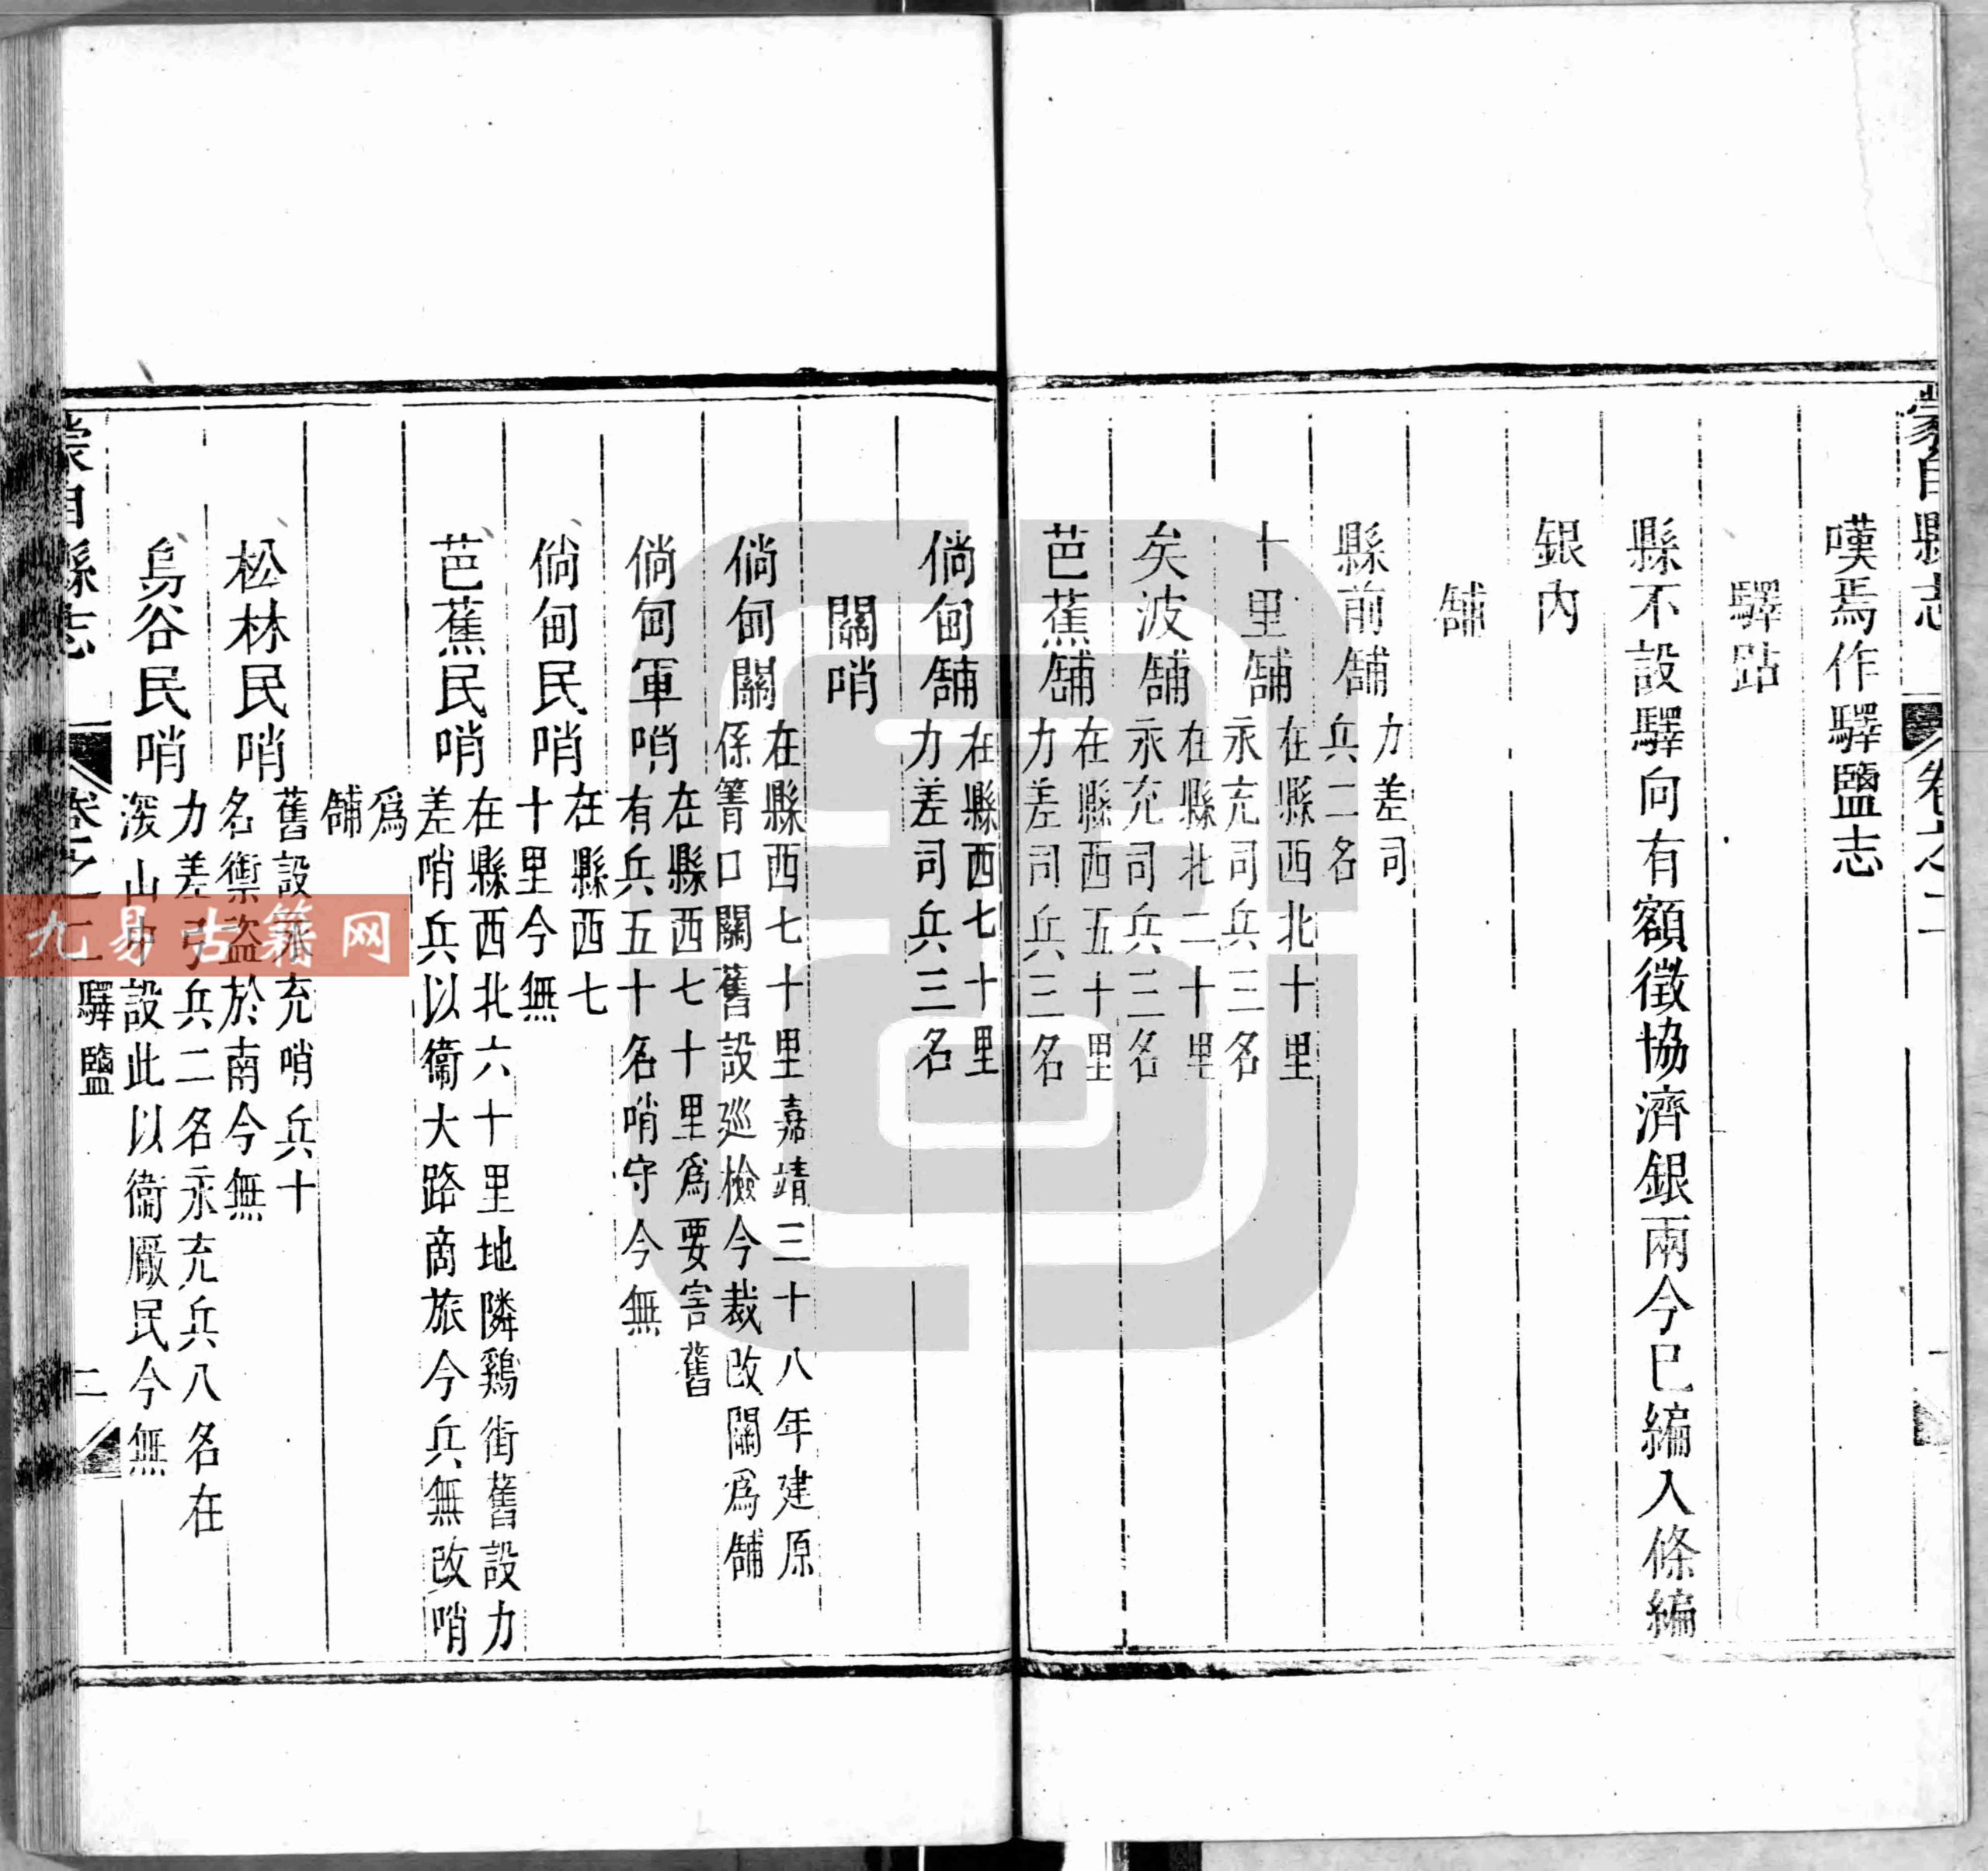 蒙自縣志
卷之二
嘆焉作驛鹽志
驛跕
縣不設驛向有額徵協濟銀兩今已編入條編
銀內
舖
縣前舖
力差司
兵二名
十里舖
在縣西北十里
永充司兵三名
矣波舖
在縣北二十里
永充司兵三名
芭蕉舖
在縣西五十里
力差司兵三名
倘甸舖
在縣西七十里
力差司兵三名
關哨
倘甸關
在縣西七十里嘉靖三十八年建原
係箐口關舊設廵檢今裁改關爲舖
倘甸軍哨
在縣西七十里爲要害舊
有兵五十名哨守今無
倘甸民哨
在縣西七
十里今無
芭蕉民哨
在縣西北六十里地隣鷄街舊設力
差哨兵以衞大路商旅今兵無改哨
爲
舖
松林民哨
舊設永充哨兵十
名禦盜於南今無
烏谷民哨
力差弓兵二名永充兵八名在
深山中設此以衞厰民今無
蒙自縣志
卷之二
驛鹽
二
九易古籍网